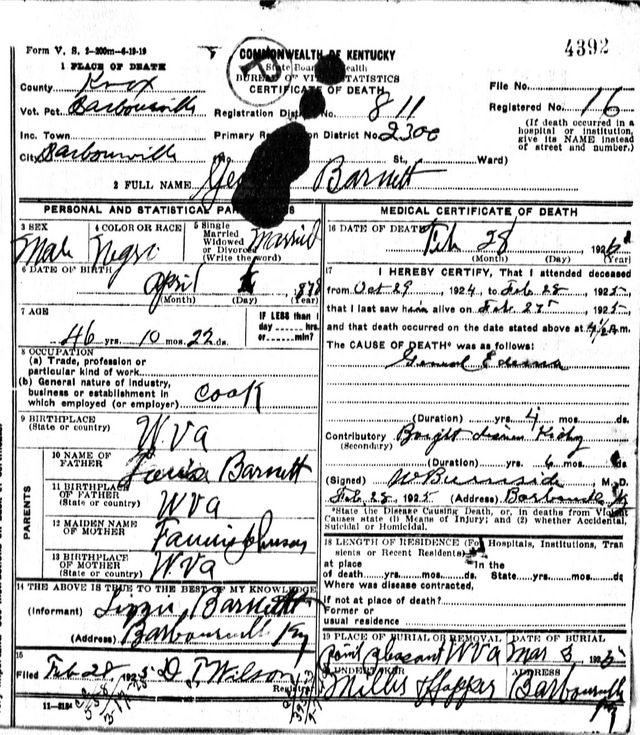 Form V. S. 2-200m-6-19-19
COMMONWEALTH OF KENTUCKY
4392
1 PLACE OF DEATH
State Board Health
County Knox
BUREAU OF VITAL STATISTICS
CERTIFICATE OF DEATH
File No.
Vot. Pct. Barbourville
Registration District No. 811
Registered No. 16
Inc. Town
Primary Registration District No. 2300
(If death occurred in a hospital or institution, give its NAME instead of street and number.)
City Barbourville
St., Ward)
2 FULL NAME Barnett
PERSONAL AND STATISTICAL PARTICULARS
3 SEX Male
4 COLOR OR RACE Negro
5 Single Married Widowed or Divorced (Write the word) Married
6 DATE OF BIRTH April
(Month) (Day) (Year)
7 AGE
46 yrs. 10 mos. 22 ds.
IF LESS than 1 day hrs. or min?
8 OCCUPATION
(a) Trade, profession or particular kind of work
(b) General nature of industry, business or establishment in which employed (or employer) Cook
9 BIRTHPLACE (State or country) W Va
PARENTS
10 NAME OF FATHER Barnett
11 BIRTHPLACE OF FATHER (State or country) W Va
12 MAIDEN NAME OF MOTHER Johnson
13 BIRTHPLACE OF MOTHER (State or country) W Va
14 THE ABOVE IS TRUE TO THE BEST OF MY KNOWLEDGE
(Informant) Barnett
(Address) Barbourville Ky
15
Filed Feb 28, 1925 D T Wilson
Registrar
11-3184
MEDICAL CERTIFICATE OF DEATH
16 DATE OF DEATH Feb 28, 192
(Month) (Day) (Year)
17 I HEREBY CERTIFY, That I attended deceased
from Oct 29 1924 to Feb 28 1925
that I last saw him alive on Feb 27 1925
and that death occurred on the date stated above at m.
The CAUSE OF DEATH* was as follows:
General Edema
(Duration) yrs. 4 mos. ds.
Contributory (Secondary) Kidney
(Duration) yrs. 6 mos. ds.
(Signed) W Burnside, M. D.
Feb 28 1925 (Address) Barbourville Ky
*State the Disease Causing Death, or, in deaths from Violent Causes state (1) Means of Injury; and (2) whether Accidental, Suicidal or Homicidal.
18 LENGTH OF RESIDENCE (For Hospitals, Institutions, Transients or Recent Residents)
at place of death yrs. mos. ds. In the State yrs. mos. ds.
Where was disease contracted,
if not at place of death?
Former or usual residence
19 PLACE OF BURIAL OR REMOVAL Point Pleasant W Va
DATE OF BURIAL Mar 3, 1925
20 UNDERTAKER Millis &
ADDRESS Barbourville Ky